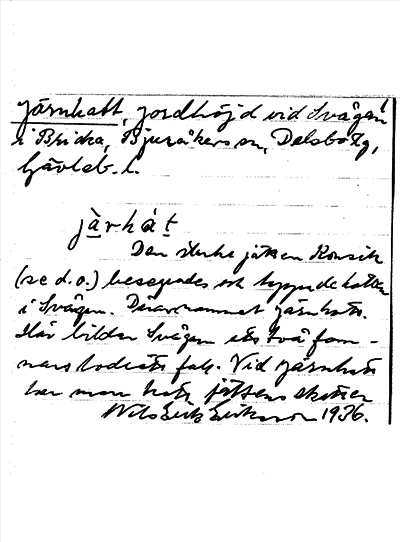 Järnhatt, jordhöjd vid Svågan
i Bricka, Bjuråkers sn, Delsbo tg,
Gävleb. l.
jàrhát
Den starke jätten Konsik
(se d.o.) besegrades och tappade hatten
i Svågan. Därav namnet Järnhatt.
Här bildar Svågan ett två fam-
nars lodrätt fall. Vid Järnhatt
har man hatt jättens
Nils Erik Eriksson 1936.